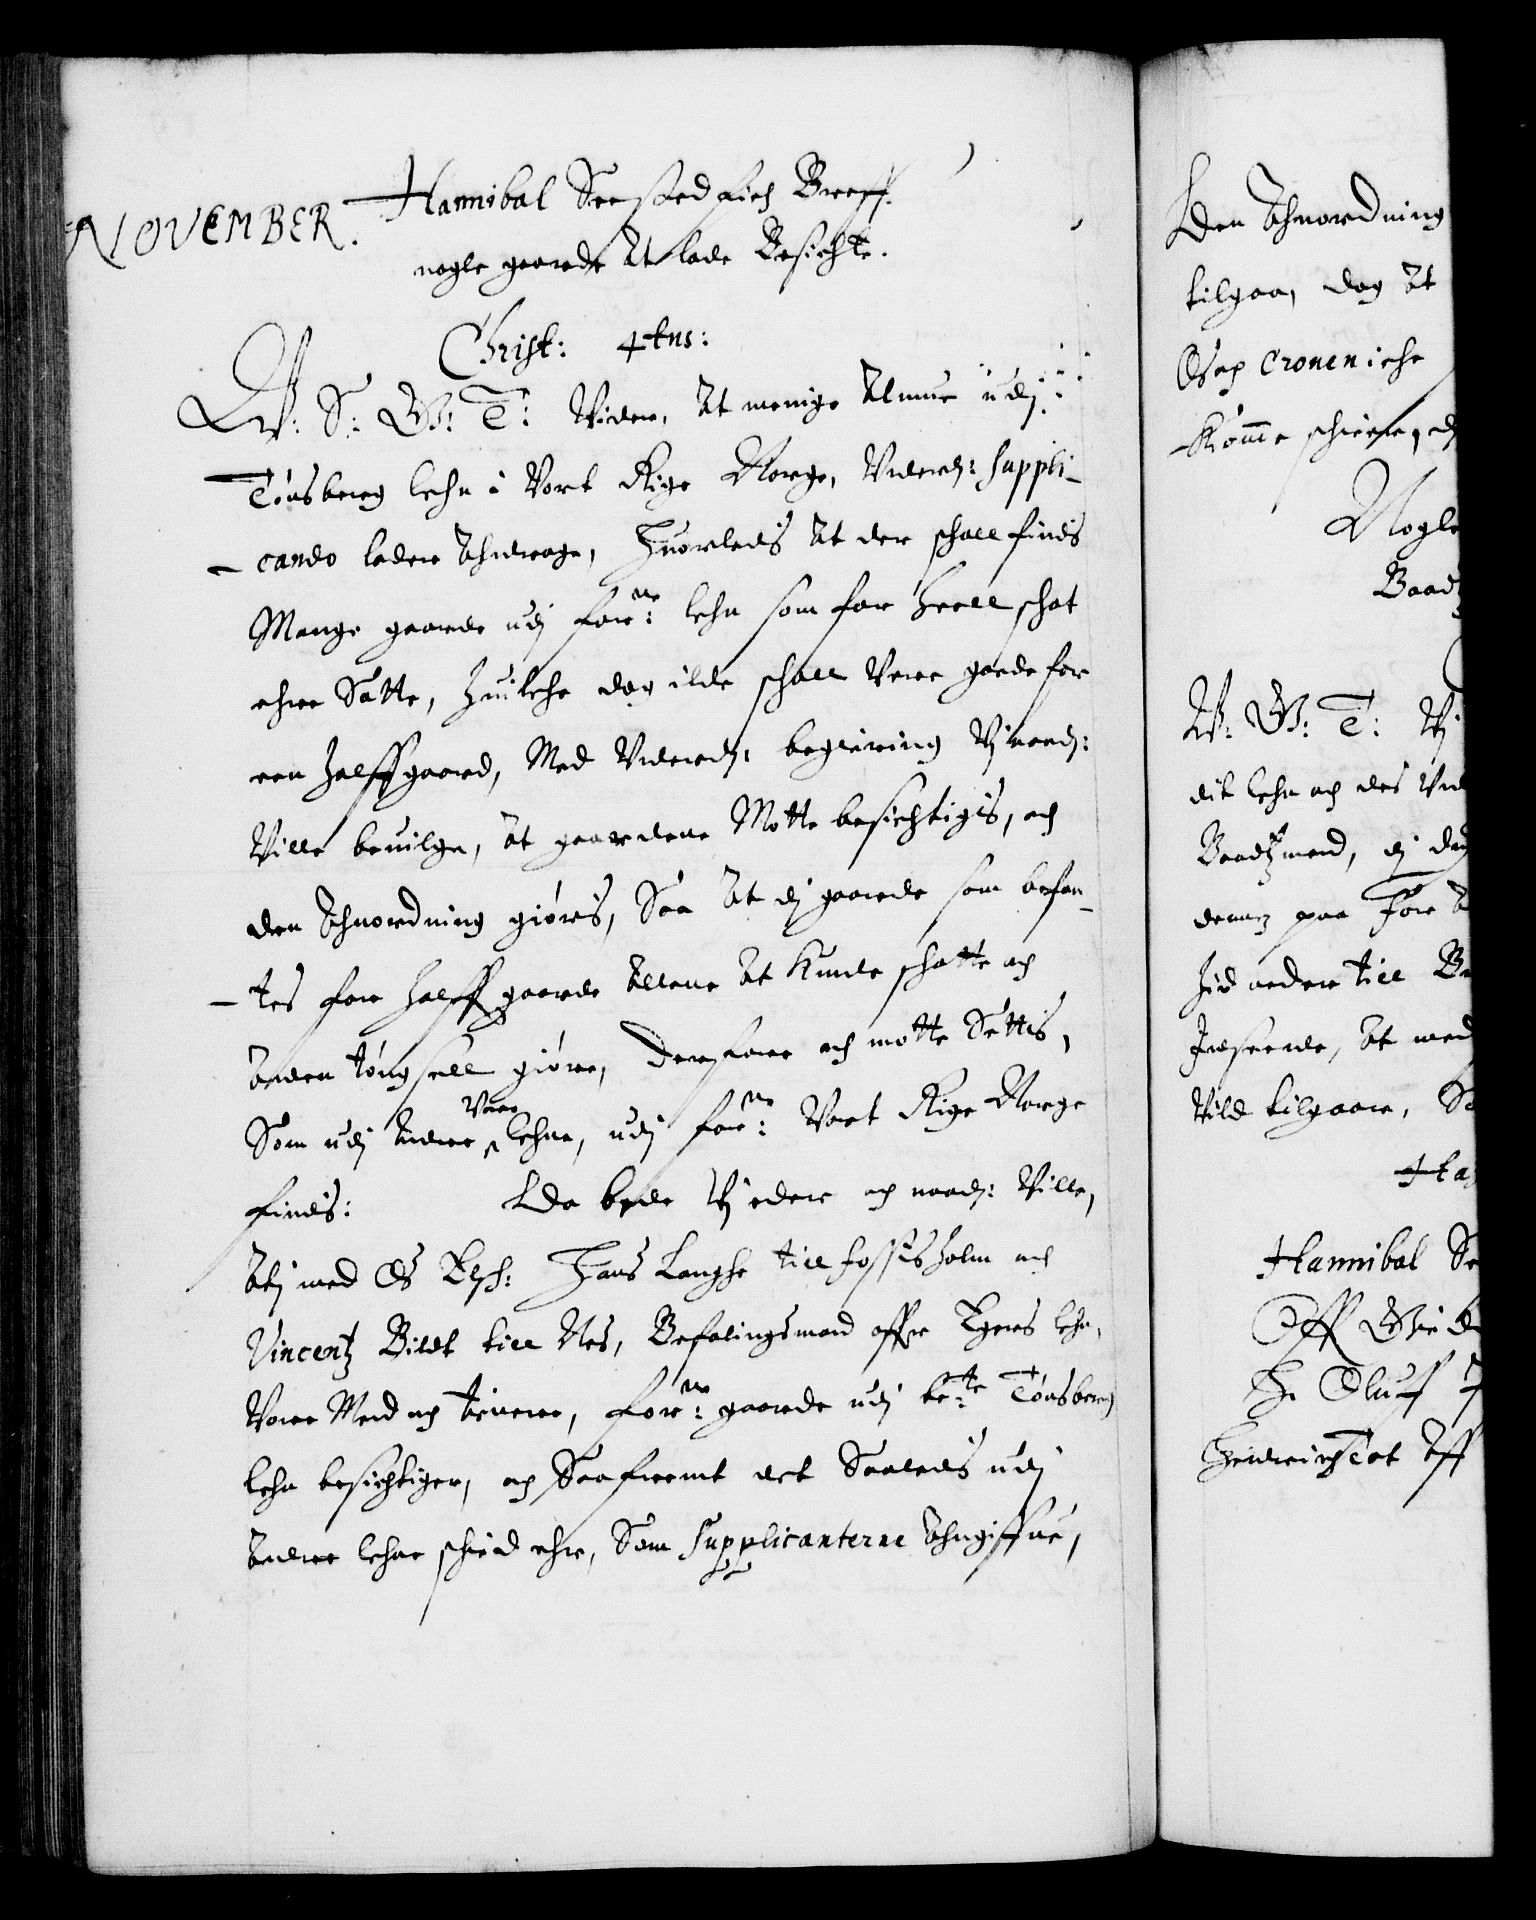 NOVEMBER.
Hannibal Seested fich Breff.
nogle gaarde At lade Besichte.
Christ: 4tus:
W: S: G: T: Vider, At menige Almue udj
Tønsberg lehn i Vort Rige Norge, Underd: suppli-
cando lader Andrage, Huorledis At der schall findis
Mange gaarde udj forne: lehn som for heell schat
ehre Satte, Huilche dog ilde schall Vere goede for
een halff gaard, Med Underd: begiering Vj naad:
Ville beuilge, At gaardene Motte besichtigis, och
den Anordning giøris, Saa At dj gaarde som befan-
tes for halff gaarde Allene At Kunde schatte och
Anden tøngsell giøre, derfore och motte Settis,
Som udj Andre Vore lehne, udj forne: Vort Rige Norge
findis: Da bede Vj eder och naad: Ville,
At j med Os Elsch: Hans Langhe till fossisholm och
Vincentz Bildt till Nes, Befalingsmand offuer Egers lehn,
Vore Mend och tienere, forne: gaarde udj bete: Tønsberg
lehn besichtiger, och Saafremt det Saaledis udj
Andre lehne schied ehr, Som Supplicanterne Angiffue,
Den Anordning
tilgaa, dog At
Os och Cronen iche
Komme schieer, e
Nogle
Baad
W: G: T: Vj
dit lehn och des Und
Baadtzmend, dj dog
paa For
till B
At med
Vild tilgaae, Sa
Ha
Hannibal Se
Off
Hr Oluff
Tot Aff